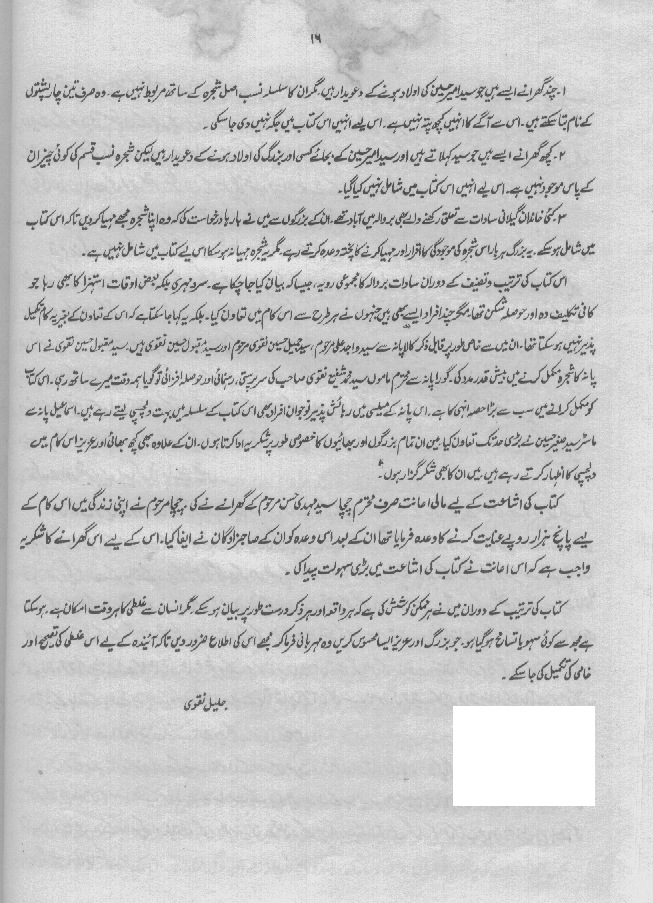 ۱۶
۱۔ چند گھرانے ایسے ہیں جو سید امیر حسین کی اولاد ہونے کے دعویدار ہیں، مگر ان کا سلسلہ نسب اصل شجرہ کے ساتھ مربوط نہیں ہے۔ وہ صرف تین چار پشتوں
کے نام بتا سکتے ہیں۔ اس سے آگے کا انہیں کچھ پتہ نہیں ہے۔ اس لیے انہیں اس کتاب میں جگہ نہیں دی جا سکی۔
۲۔ کچھ گھرانے ایسے ہیں جو سید کہلاتے ہیں اور سید امیر حسین کے بجائے کسی اور بزرگ کی اولاد ہونے کے دعویدار ہیں لیکن شجرہ نسب قسم کی کوئی چیز ان
کے پاس موجود نہیں ہے۔ اس لیے انہیں اس کتاب میں شامل نہیں کیا گیا۔
۳۔ کئی خاندان گیلانی سادات سے تعلق رکھنے والے بھی بروالہ میں آباد تھے۔ ان کے بزرگوں سے میں نے بارہا درخواست کی کہ وہ اپنا شجرہ مجھے مہیا کر دیں تاکہ اس کتاب
میں شامل ہو سکے۔ یہ بزرگ ہر بار اس شجرہ کی موجودگی کا اقرار اور مہیا کرنے کا پختہ وعدہ کرتے رہے۔ مگر یہ شجرہ مہیا نہ ہو سکا اس لیے کتاب میں شامل نہیں ہے۔
اس کتاب کی ترتیب و تصنیف کے دوران سادات بروالہ کا مجموعی رویہ، جیسا کہ بیان کیا جا چکا ہے۔ سرد مہری بلکہ بعض اوقات استہزا کا بھی رہا جو
کافی تکلیف دہ اور حوصلہ شکن تھا، مگر چند افراد ایسے بھی ہیں جنہوں نے ہر طرح سے اس کام میں تعاون کیا۔ بلکہ یہ کہا جا سکتا ہے کہ اس کے تعاون کے بغیر یہ کام تکمیل
پذیر نہیں ہو سکتا تھا۔ ان میں سے خاص طور پر قابل ذکر کالا پانہ سے سید واجد علی مرحوم، سید جمیل حسین نقوی مرحوم اور سید مقبول حسین نقوی ہیں۔ سید مقبول حسین نقوی نے اس
پانہ کا شجرہ مکمل کرنے میں بیش قدر مدد کی۔ گورا پانہ سے محترم ماموں سید محمد شفیع نقوی صاحب کی سرپرستی، رہنمائی اور حوصلہ افزائی تو گویا ہمہ وقت میرے ساتھ رہی۔ اس کتاب
کو مکمل کرانے میں سب سے بڑا حصہ انہی کا ہے۔ اس پانہ کے میلسی میں رہائش پذیر نوجوان افراد بھی اس کتاب کے سلسلہ میں بہت دلچسپی لیتے رہے ہیں۔ اسماعیل پانہ سے
ماسٹر سید صغیر حسین نے بڑی حد تک تعاون کیا۔ میں ان تمام بزرگوں اور بھائیوں کا خصوصی طور پر شکریہ ادا کرتا ہوں۔ ان کے علاوہ بھی کچھ بھائی اور عزیز اس کام میں
دلچسپی کا اظہار کرتے رہے ہیں۔ میں ان کا بھی شکر گزار ہوں۔
کتاب کی اشاعت کے لیے مالی اعانت صرف محترم چچا سید مہدی حسن مرحوم کے گھرانے نے کی۔ چچا مرحوم نے اپنی زندگی میں اس کام کے
لیے پانچ ہزار روپے عنایت کرنے کا وعدہ فرمایا تھا ان کے بعد اس وعدہ کو ان کے صاحبزادگان نے ایفا کیا۔ اس کے لیے اس گھرانے کا شکریہ
واجب ہے کہ اس اعانت نے کتاب کی اشاعت میں بڑی سہولت پیدا کی۔
کتاب کی ترتیب کے دوران میں نے ہر ممکن کوشش کی ہے کہ ہر واقعہ اور ہر ذکر درست طور پر بیان ہو سکے۔ مگر انسان سے غلطی کا ہر وقت امکان ہے۔ ہو سکتا
ہے مجھ سے کوئی سہو یا تسامح ہو گیا ہو۔ جو بزرگ اور عزیز ایسا محسوس کریں وہ مہربانی فرما کر مجھے اس کی اطلاع ضرور دیں تاکہ آئندہ کے لیے اس غلطی کی تصحیح اور
خامی کی تکمیل کی جا سکے۔
جلیل نقوی